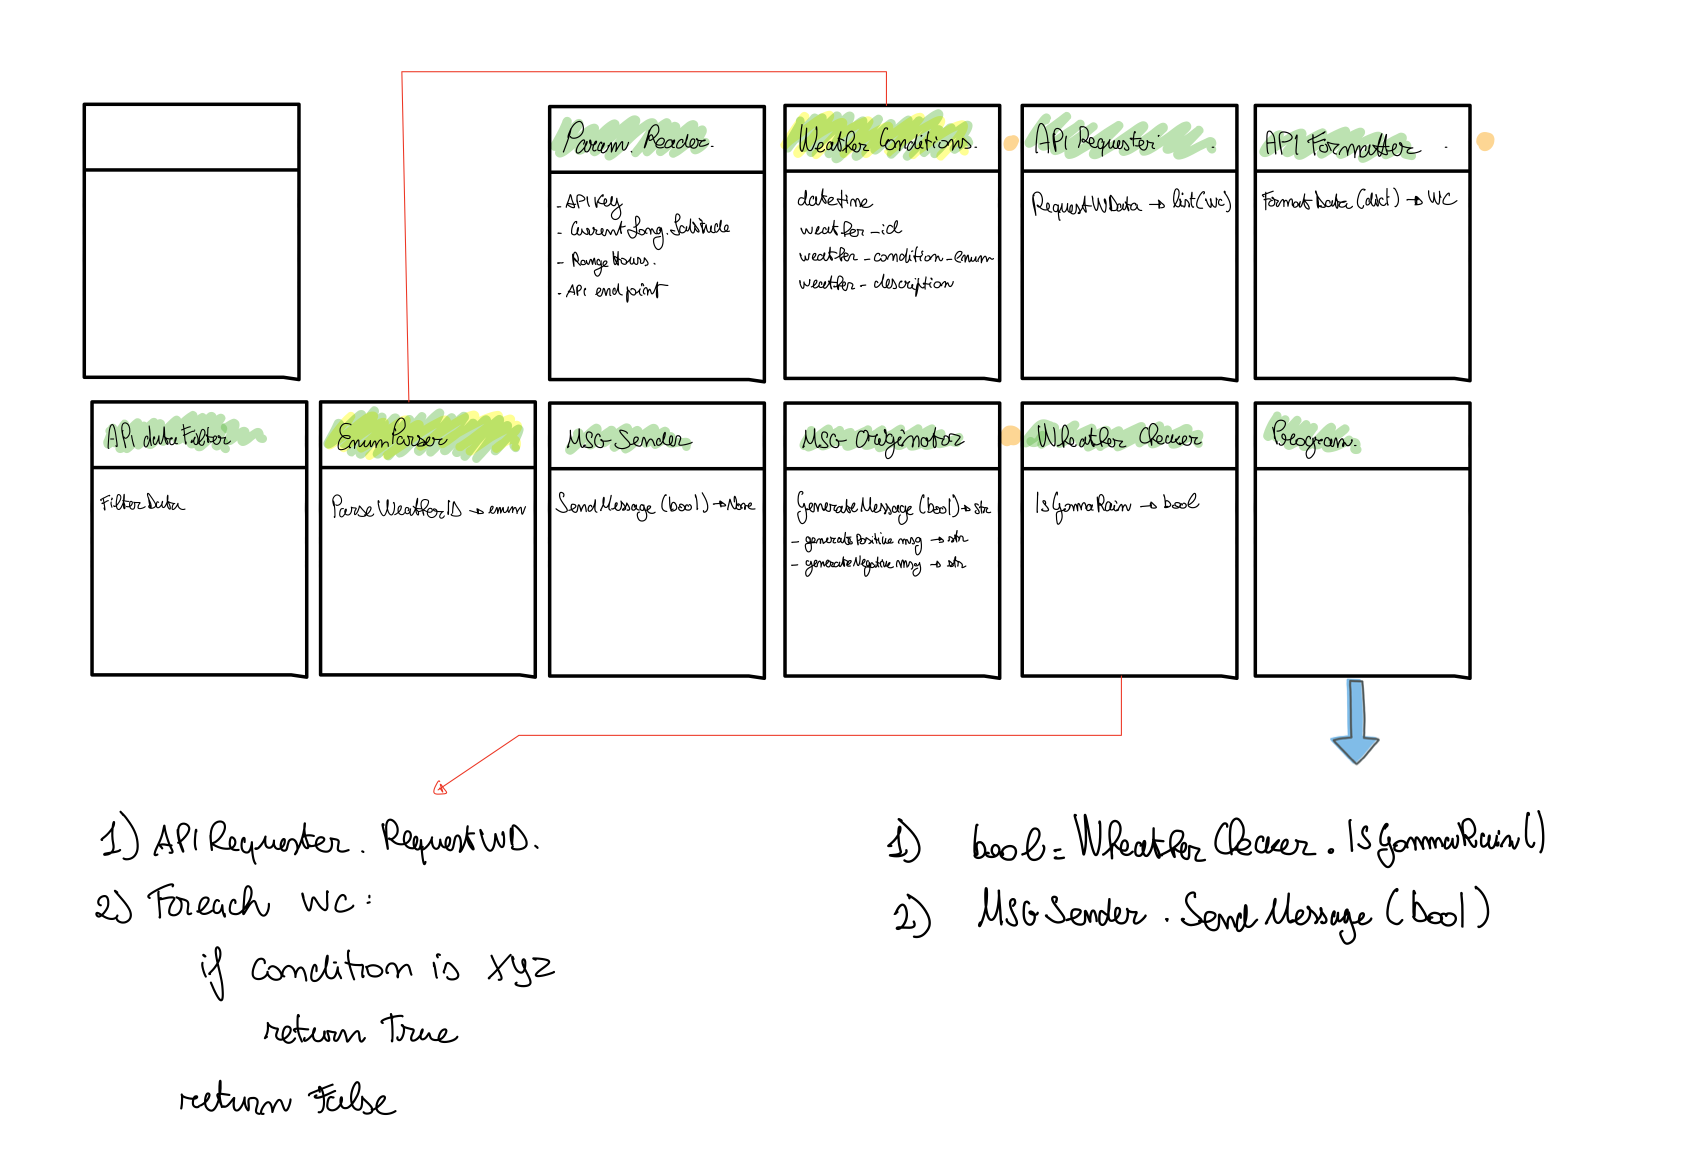 Param. Reader.
- API Key
- Current Long. Latitude
- Range Hours.
- API endpoint
Weather Conditions.
datetime
weather_id
weather_condition_enum
weather_description
API Requester.
RequestWData → list(wc)
API Formatter.
FormatData(dict) → WC
API dataFilter
FilterData
EnumParser
ParseWeatherID → enum
MSG Sender
SendMessage(bool) → None
MSG Originator
GenerateMessage(bool) → str
- generatePositive msg → str
- generateNegative msg → str
Wheather Checker
IsGonnaRain → bool
Program.
1) API Requester. RequestWD.
2) Foreach WC:
if condition is xyz
return True
return False
1) bool = Wheather Checker. IsGonnaRain()
2) MSG Sender. SendMessage(bool)